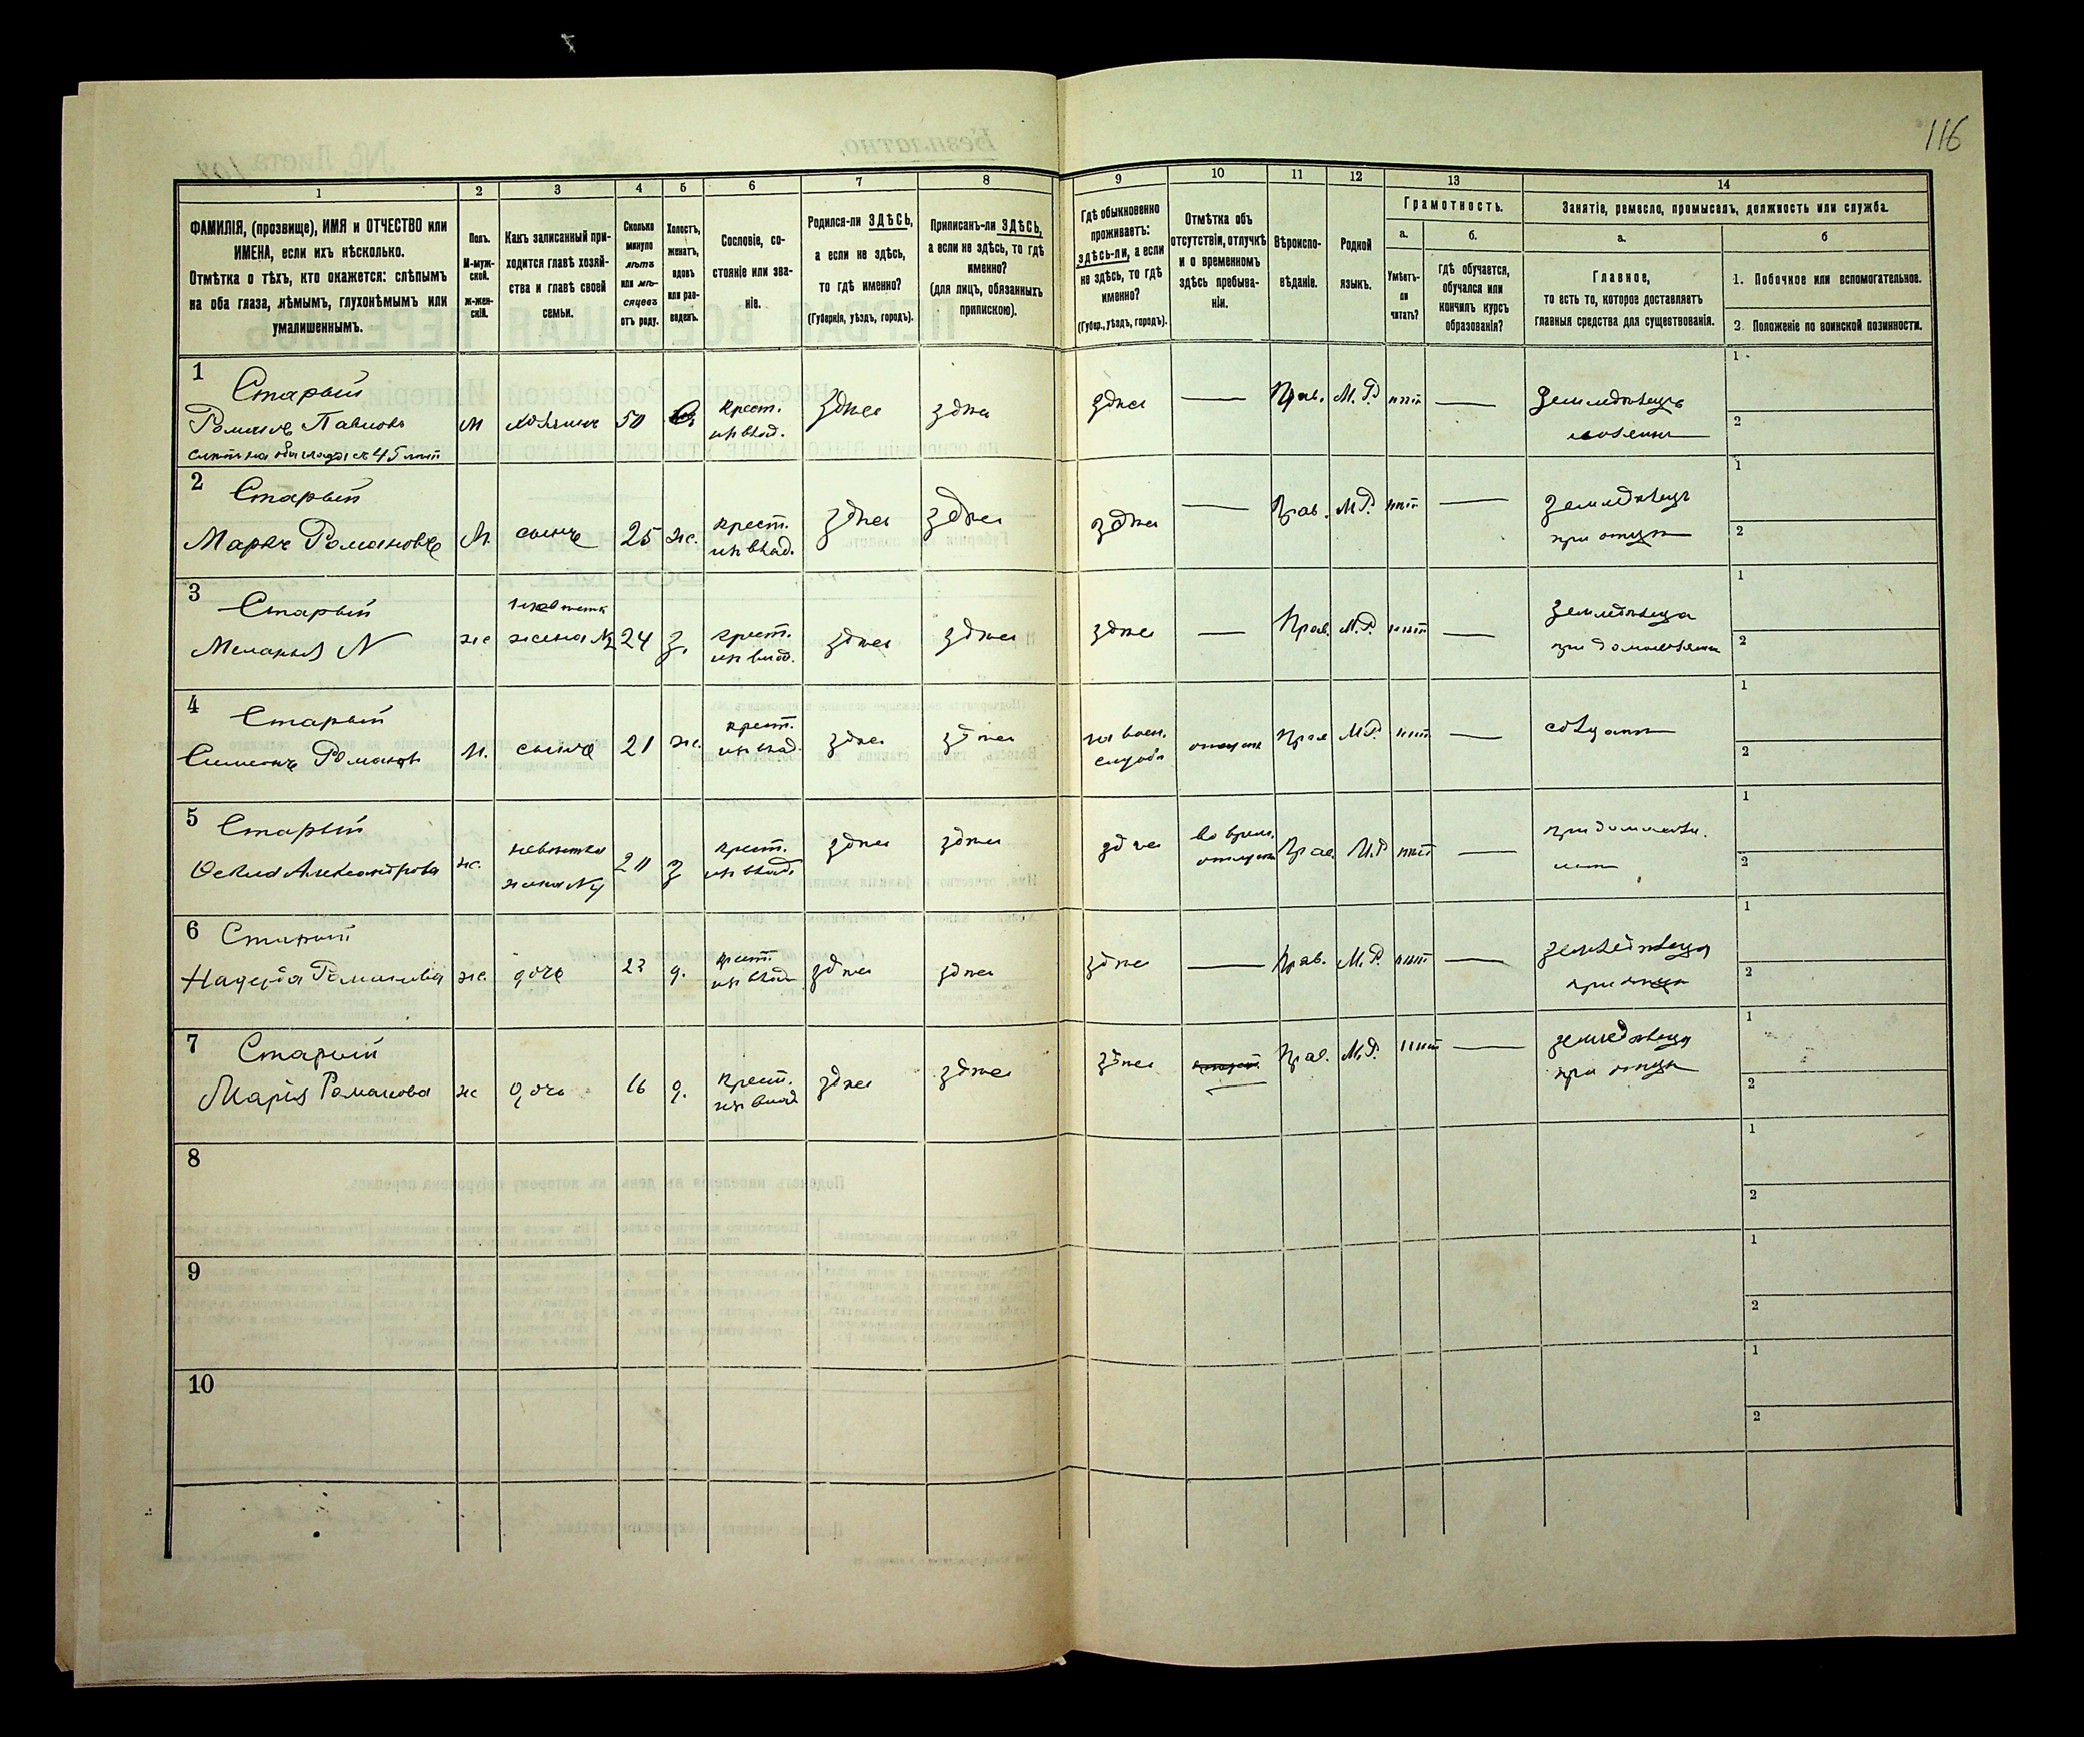 116
1
2
3
4
5
6
7
8
9
10
11
12
13
14
ФАМИЛІЯ, (прозвище), ИМЯ и ОТЧЕСТВО или
ИМЕНА, если ихъ нѣсколько.
Отмѣтка о тѣхъ, кто окажется: слѣпымъ
на оба глаза, нѣмымъ, глухонѣмымъ или
умалишеннымъ.
Полъ.
М-муж-
ской.
ж-жен-
скій.
Какъ записанный при-
ходится главѣ хозяй-
ства и главѣ своей
семьи.
Сколько
минуло
лѣтъ
или мѣ-
сяцевъ
отъ роду.
Холостъ,
женатъ,
вдовъ
или раз-
веденъ.
Сословіе, со-
стояніе или зва-
ніе.
Родился-ли ЗДѢСЬ,
а если не здѣсь,
то гдѣ именно?
(Губернія, уѣздъ, городъ).
Приписанъ-ли ЗДѢСЬ,
а если не здѣсь, то гдѣ
именно?
(для лицъ, обязанныхъ
припискою).
Гдѣ обыкновенно
проживаетъ:
здѣсь-ли, а если
не здѣсь, то гдѣ
именно?
(Губер., уѣздъ, городъ).
Отмѣтка объ
отсутствіи, отлучкѣ
и о временномъ
здѣсь пребыва-
ніи.
Вѣроиспо-
вѣданіе.
Родной
языкъ.
Грамотность.
а.
Умѣетъ-
ли
читать?
б.
гдѣ обучается,
обучался или
кончилъ курсъ
образованія?
Занятіе, ремесло, промыселъ, должность или служба.
а.
Главное,
то есть то, которое доставляетъ
главныя средства для существованія.
б
1. Побочное или вспомогательное.
2. Положеніе по воинской повинности.
1
Старый
Романъ Павловъ
слѣпъ на оба глаза съ 45 лѣт
М
хозяинъ
50
крест.
из влад.
здѣсь
здѣсь
здѣсь
—
Прав.
М.Р.
нѣт
—
Земледѣлецъ
хозяинъ
1
2
2
Старый
Маркъ Романовъ
М.
сынъ
25
ж.
крест.
из влад.
здѣсь
здѣсь
здѣсь
—
Прав.
М.Р.
нѣт
—
Земледѣлецъ
при отцѣ
1
2
3
Старый
Меланья N
ж
невѣстка
жена № 2
24
з.
крест.
из влад.
здѣсь
здѣсь
здѣсь
—
Прав.
М.Р.
нѣт
—
земледѣлица
1
2
4
Старый
Симеонъ Романовъ
М.
сынъ
21
ж.
крест.
из влад.
здѣсь
здѣсь
на воен.
службѣ
Прав
М.Р.
нѣт
—
солдатъ
1
2
5
Старый
Александрова
ж.
невѣстка
жена № 4
20
з
крест.
из влад.
здѣсь
здѣсь
здѣсь
Прав.
М.Р
нѣт
—
1
2
6
Старый
Надежда Романова
ж.
дочь
д.
крест.
из влад
здѣсь
здѣсь
здѣсь
—
Прав.
М.Р.
нѣт
—
земледѣлица
при отцѣ
1
2
7
Старый
Марія Романова
ж
дочь
16
д.
крест.
из влад
здѣсь
здѣсь
здѣсь
Прав.
М.Р.
нѣт
—
земледѣлица
при отцѣ
1
2
8
1
2
9
1
2
10
1
2